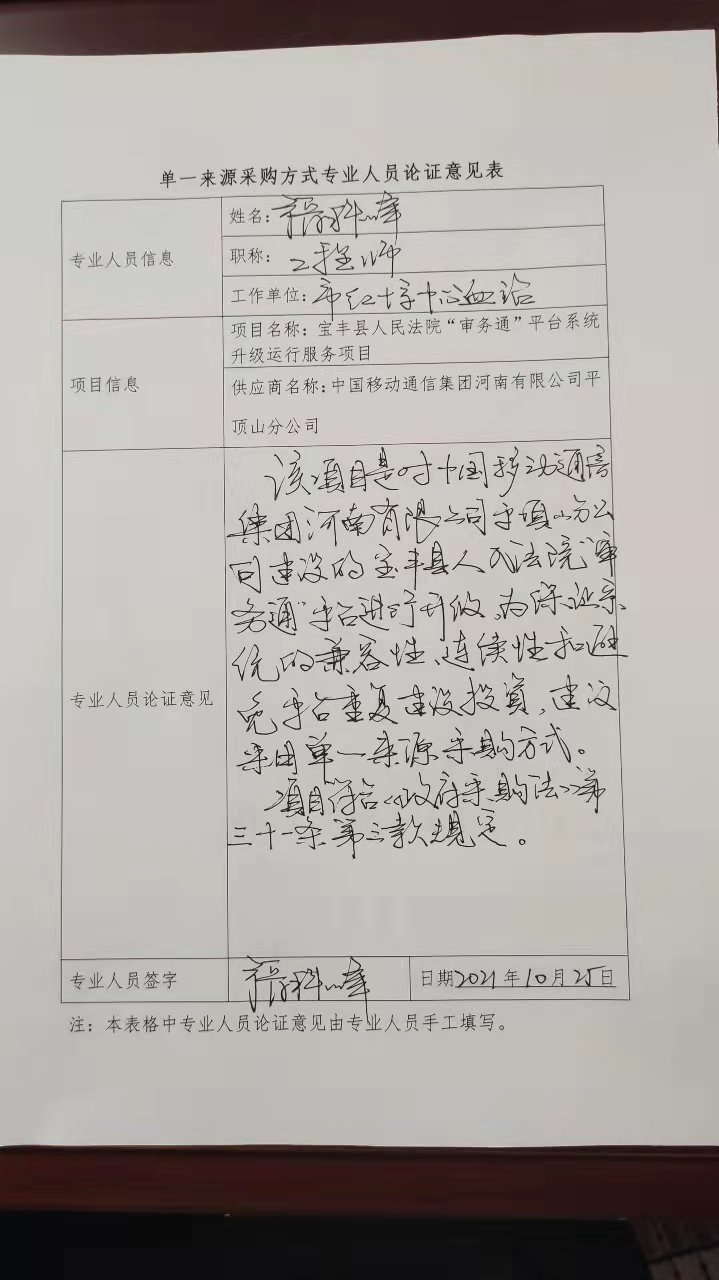 单一来源采购方式专业人员论证意见表
专业人员信息
姓名:
职称: 工程师
工作单位: 市红十字中心血站
项目信息
项目名称: 宝丰县人民法院“审务通”平台系统
升级运行服务项目
供应商名称: 中国移动通信集团河南有限公司平
顶山分公司
专业人员论证意见
该项目是对中国移动通信
集团河南有限公司平顶山分公
司建设的宝丰县人民法院“审
务通”平台进行升级,为保证系
统的兼容性、连续性和避
免平台重复建设投资,建议
采用单一来源采购方式。
项目符合《政府采购法》第
三十一条第三款规定。
专业人员签字
日期2021年10月25日
注: 本表格中专业人员论证意见由专业人员手工填写。